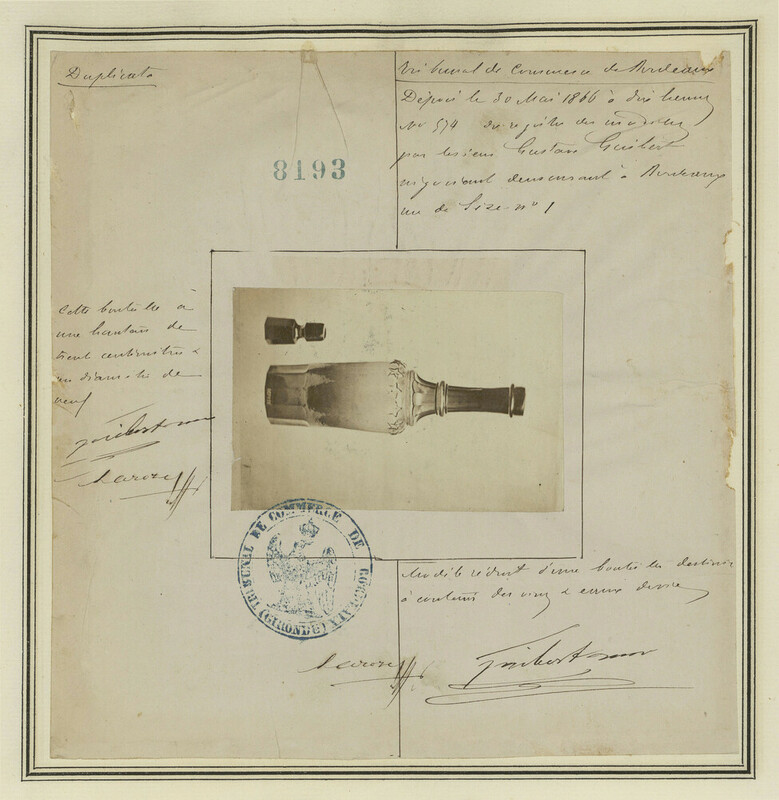 Duplicata
Tribunal de Commerce de Bordeaux
Déposé le 30 Mai 1866 à dix heures
No 574 du registre des modèles
par le sieur Gustave Guibert
négociant demeurant à Bordeaux
rue de Lize no 1
8193
Cette bouteille a
une hauteur de
trente centimètres &
un diamètre de
neuf
TRIBUNAL DE COMMERCE DE BORDEAUX (GIRONDE)
Modèle réduit d'une bouteille destinée
à contenir des vins & eaux de vie